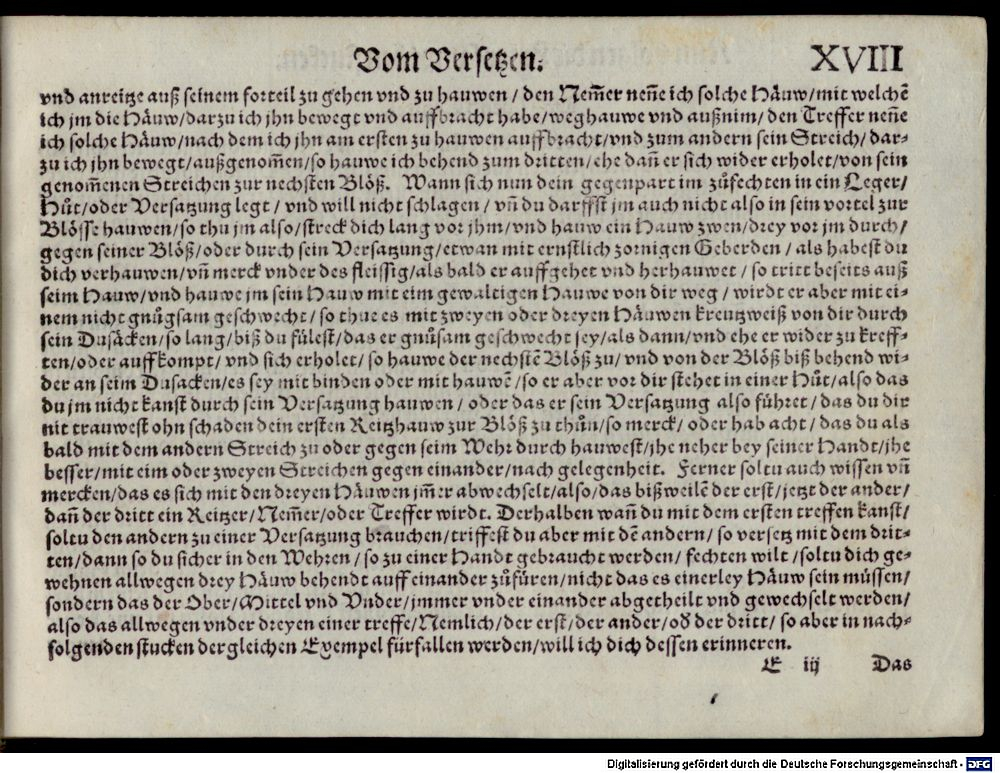 Vom Versetzen. XVIII
vnd anreitze auß seinem forteil zu gehen vnd zu hauwen / den Nem̄er nen̄e ich solche Häuw/mit welchē
ich jm die Häuw/darzu ich jhn bewegt vnd auffbracht habe/weghauwe vnd außnim/den Treffer nen̄e
ich solche Häuw/nach dem ich jhn am ersten zu hauwen auffbracht/vnd zum andern sein Streich/dar-
zu ich jhn bewegt/außgenom̄en/so hauwe ich behend zum dritten/ehe dan̄ er sich wider erholet/von sein
genom̄enen Streichen zur nechsten Blöß. Wann sich nun dein gegenpart im zůfechten in ein Leger/
Hůt/oder Versatzung legt / vnd will nicht schlagen / vn̄ du darffst jm auch nicht also in sein vortel zur
Blösse hauwen/so thu jm also/streck dich lang vor jhm/vnd hauw ein Hauw zwen/drey vor jm durch/
gegen seiner Blöß/oder durch sein Versatzung/etwan mit ernstlich zornigen Geberden / als habest du
dich verhauwen/vn̄ merck vnder des fleissig/als bald er auffgehet vnd herhauwet / so tritt beseits auß
seim Hauw/vnd hauwe jm sein Hauw mit eim gewaltigen Hauwe von dir weg / wirdt er aber mit ei-
nem nicht gnůgsam geschwecht/so thue es mit zweyen oder dreyen Häuwen kreutzweiß von dir durch
sein Dusäcken/so lang/biß du fülest/das er gnůsam geschwecht sey/als dann/vnd ehe er wider zu kreff-
ten/oder auffkompt/ vnd sich erholet/ so hauwe der nechstē Blöß zu/vnd von der Blöß biß behend wi-
der an seim Dusacken/es sey mit binden oder mit hauwē/so er aber vor dir stehet in einer Hůt/also das
du jm nicht kanst durch sein Versatzung hauwen / oder das er sein Versatzung also führet/das du dir
nit trauwest ohn schaden dein ersten Reitzhauw zur Blöß zu thůn/so merck/ oder hab acht / das du als
bald mit dem andern Streich zu oder gegen seim Wehr durch hauwest/jhe neher bey seiner Handt/jhe
besser/mit eim oder zweyen Streichen gegen einander/nach gelegenheit. Ferner soltu auch wissen vn̄
mercken/das es sich mit den dreyen Häuwen jm̄er abwechselt/also/das bißweilē der erst/jetzt der ander/
dan̄ der dritt ein Reitzer/Nem̄er/oder Treffer wirdt. Derhalben wan̄ du mit dem ersten treffen kanst/
soltu den andern zu einer Versatzung brauchen/triffest du aber mit dē andern/ so versetz mit dem drit-
ten/dann so du sicher in den Wehren / so zu einer Handt gebraucht werden/ fechten wilt /soltu dich ge-
wehnen allwegen drey Häuw behendt auff einander zůfüren/nicht das es einerley Häuw sein müssen/
sondern das der Ober/Mittel vnd Vnder/jmmer vnder einander abgetheilt vnd gewechselt werden/
also das allwegen vnder dreyen einer treffe/Nemlich/der erst/der ander/od̄ der dritt/ so aber in nach-
folgenden stucken dergleichen Exempel fürfallen werden/will ich dich dessen erinneren.
E iij Das
Digitalisierung gefördert durch die Deutsche Forschungsgemeinschaft - DFG